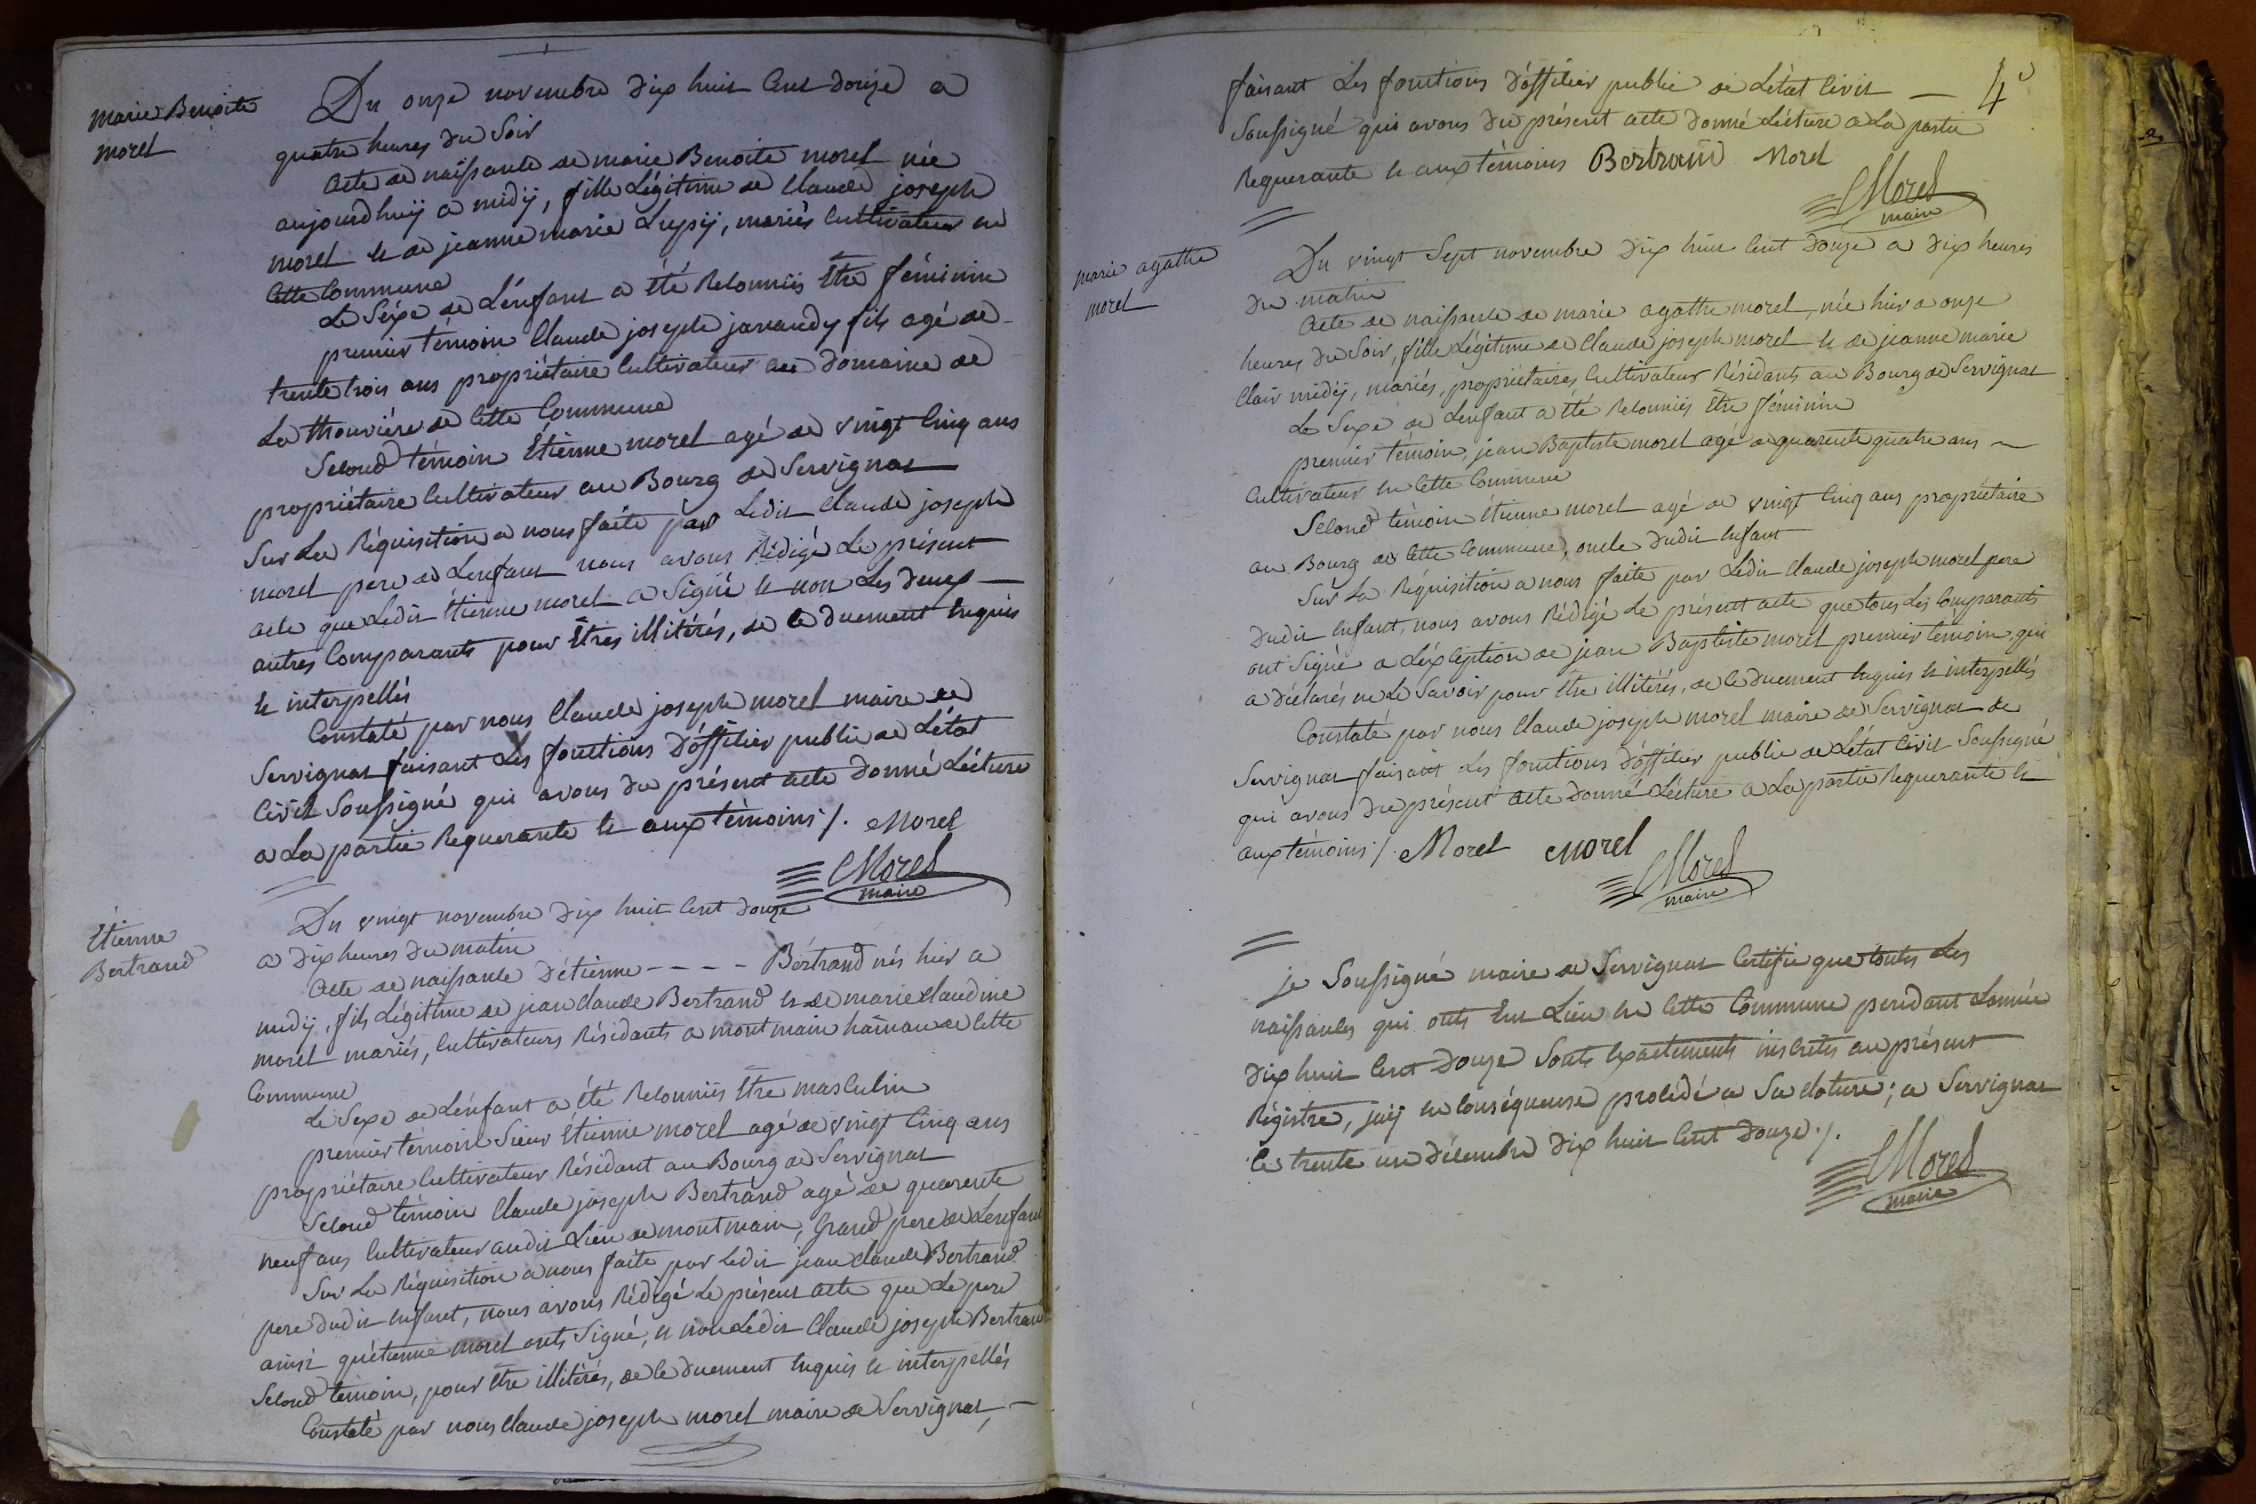 Marie Benoite
morel
Du onze novembre dix huit Cent douze a
quatre heures du Soir
Acte de naissance de marie Benoite morel née
aujourdhuÿ a midÿ, fille Légitime de Claude joseph
morel et de jeanne marie Lupÿ, mariés Cultivateurs en
Cette Commune
Le Séxe de L'énfant a Eté Reconnüs Etre féminin
premier témoin Claude joseph janaudy fils agé de
trente trois ans propriétaire Cultivateur au Domaine de
La Mouvière de Cette Commune
Second témoin Etienne morel agé de vingt Cinq ans
propriétaire Cultivateur au Bourg de Servignat
Sur La Réquisition a nous faite par Ledit Claude joseph
morel pere de Lenfant nous avons Rédigé Le présent
acte que Ledit étienne morel a Signé et non Les deux
autres Comparants pour Etres illitérés, de Ce duement Enquis
et interpellés
Constaté par nous Claude joseph morel maire de
Servignat faisant Les fonctions D'officier public de L'état
Civil Soussigné qui avons du présent acte donné Lécture
a La partie Requerante et aux témoins /. Morel
Morel
maire
Etienne
Bertrand
Du vingt novembre dix huit Cent douze
a dix heures du matin
Acte de naissance d'étienne - - - - Bértrand nés hier a
midÿ, fils Légitime de jean Claude Bertrand et de marie Claudine
morel mariés, Cultivateurs Résidants a montmain hâmau de Cette
Commune
Le Sexe de L'énfant a été Reconnüs Etre masculin
premier témoin Sieur Etienne morel agé de vingt Cinq ans
propriétaire Cultivateur Résidant au Bourg de Servignat
Second témoin Claude joseph Bertrand agé de quarente
neuf ans Cultivateur audit Lieu de montmain, Grand pere de Lenfant
Sur La Réquisition a nous faite par Ledit jean Claude Bertrand
pere dudit Enfant, nous avons Rédigé Le présent acte que Le pere
ainsi qu'étienne morel onts Signé, et non Ledit Claude joseph Bertrand
Second témoin, pour Etre illitérés, de Ce duement Enquis et interpellés
Constaté par nous Claude joseph morel maire de Servignat,
faisant Les fonctions D'officier public de L'état Civil — 4
Soussigné qui avons du présent acte donné Lécture a La partie
Requerante et aux témoins Bertrand Morel
Morel
maire
marie agathe
morel
Du vingt Sept novembre dix huit Cent douze a dix heures
du matin
Acte de naissance de marie agathe morel, née hier a onze
heures du Soir, fille Légitime de Claude joseph morel et de jeanne marie
Clair midÿ, mariés, propriétaires Cultivateurs Résidants au Bourg de Servignat
Le Sexe de Lenfant a été Reconnüs Etre féminin
premier témoin, jean Baptiste morel agé de quarente quatre ans
Cultivateur En Cette Commune
Second témoin étienne morel agé de vingt Cinq ans propriétaire
au Bourg de Cette Commune, oncle dudit Enfant
Sur La Réquisition a nous faite par Ledit Claude joseph morel pere
dudit Enfant, nous avons Rédigé Le présent acte que tous Les Comparants
ont Signé a L'éxCéption de jean Baptiste morel premier témoin, qui
a déclarés ne Le Savoir pour Etre illitérés, de Ce duement Enquis et interpellés
Constaté par nous Claude joseph morel maire de Servignat de
Servignat faisant Les fonctions D'officier public de L'état Civil Soussigné
qui avons du présent acte donné Lécture a La partie Requerante et
aux témoins /. Morel morel
Morel
maire
je Soussigné maire de Servignat Certifie que toutes Les
naissances qui onts Eut Lieu En Cette Commune pendant L'année
dix huit Cent douze Sonts Exactements inscrites au présent
Régistre, jaÿ En Conséquense procédé a Sa cloture; a Servignat
Ce trente un décembre dix huit Cent douze /.
Morel
maire